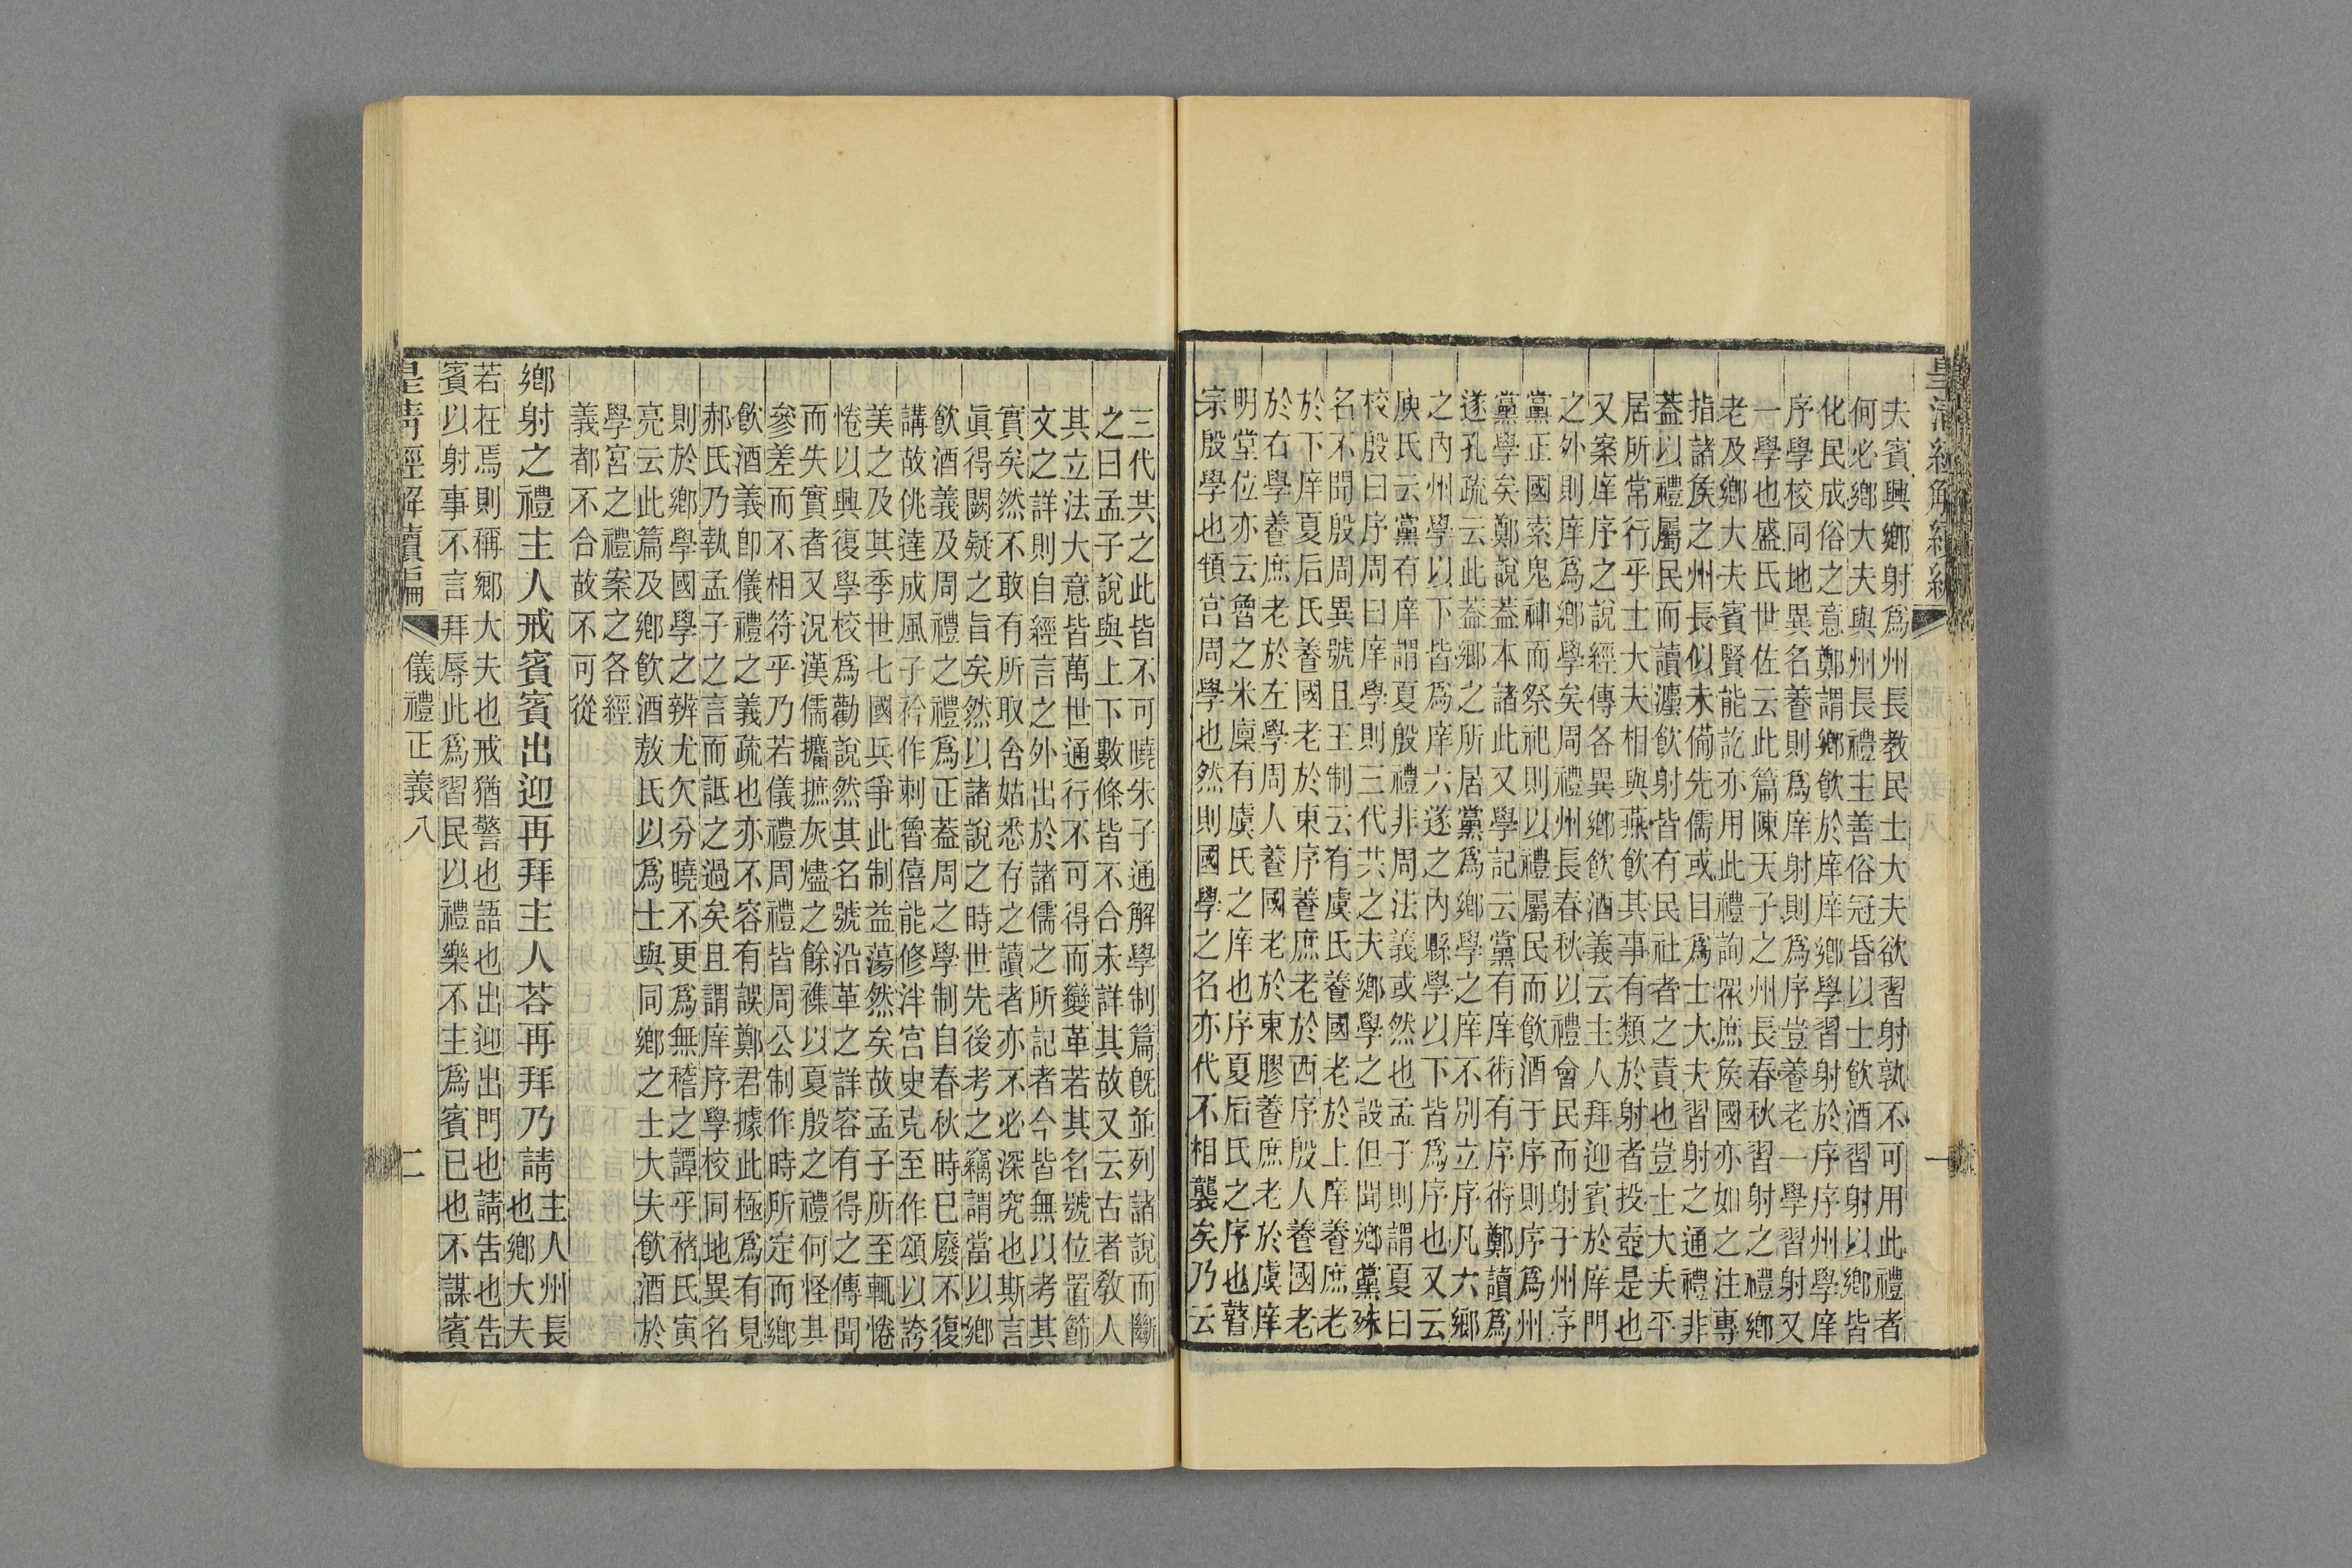 夫賓興鄉射爲州長教民士大夫欲習射孰不可用此禮者
何必鄉大夫與州長禮主善俗冠昏以士飲酒習射以鄉皆
化民成俗之意鄭謂鄉飲於庠鄉學習射於序州學庠
序學校同地異名養則爲庠射則爲序豈養老一學習射又
一學也盛氏世佐云此篇陳天子之州長春秋習射之禮鄉
老及鄉大夫賓賢能訖亦用此禮詢眾庶矦國亦如之注專
指諸矦之州長似未備先儒或目爲士大夫習射之通禮非
葢以禮屬民而讀灋飲射皆有民社者之責也豈士大夫平
居所常行乎士大夫相與燕飲其事有類於射者投壺是也
又案庠序之說經傳各異鄉飲酒義云主人拜迎賓於庠門
之外則庠爲鄉學矣周禮州長春秋以禮會民而射于州序
黨正國索鬼神而祭祀則以禮屬民而飲酒于序則序爲州
黨學矣鄭說葢本諸此又學記云黨有庠術有序術鄭讀爲
遂孔疏云此葢鄉之所居黨爲鄉學之庠不別立序凡六鄉
之內州學以下皆爲庠六遂之內縣學以下皆爲序也又云
庾氏云黨有庠謂夏殷禮非周法義或然也孟子則謂夏曰
校殷曰序周曰庠學則三代共之夫鄉學之設但聞鄉黨殊
名不聞殷周異號且王制云有虞氏養國老於上庠養庶老
於下庠夏后氏養國老於東序養庶老於西序殷人養國老
於右學養庶老於左學周人養國老於東膠養庶老於虞庠
明堂位亦云魯之米廩有虞氏之庠也序夏后氏之序也瞽
宗殷學也頖宮周學也然則國學之名亦代不相襲矣乃云
三代共之此皆不可曉朱子通解學制篇旣並列諸說而斷
之曰孟子說與上下數條皆不合未詳其故又云古者敎人
其立法大意皆萬世通行不可得而變革若其名號位置節
文之詳則自經言之外出於諸儒之所記者今皆無以考其
實矣然不敢有所取舍姑悉存之讀者亦不必深究也斯言
眞得闕疑之旨矣然以諸說之時世先後考之竊謂當以鄉
飲酒義及周禮之禮爲正葢周之學制自春秋時已廢不復
講故佻達成風子衿作刺魯僖能修泮宮史克至作頌以誇
美之及其季世七國兵爭此制益蕩然矣故孟子所至輒惓
惓以興復學校爲勸說然其名號沿革之詳容有得之傳聞
而失實者又況漢儒攟摭灰燼之餘襍以夏殷之禮何怪其
參差而不相符乎乃若儀禮周禮皆周公制作時所定而鄉
飲酒義卽儀禮之義疏也亦不容有誤鄭君據此極爲有見
郝氏乃執孟子之言而詆之過矣且謂庠序學校同地異名
則於鄉學國學之辨尤欠分曉不更爲無稽之譚乎褚氏寅
亮云此篇及鄉飲酒敖氏以爲士與同鄉之士大夫飲酒於
學宮之禮案之各經
義都不合故不可從
鄉射之禮主人戒賓賓出迎再拜主人荅再拜乃請主人州長
也鄉大夫
若在焉則稱鄉大夫也戒猶警也語也出迎出門也請告也告
賓以射事不言拜辱此爲習民以禮樂不主爲賓已也不謀賓
皇清經解續編 儀禮正義八 二